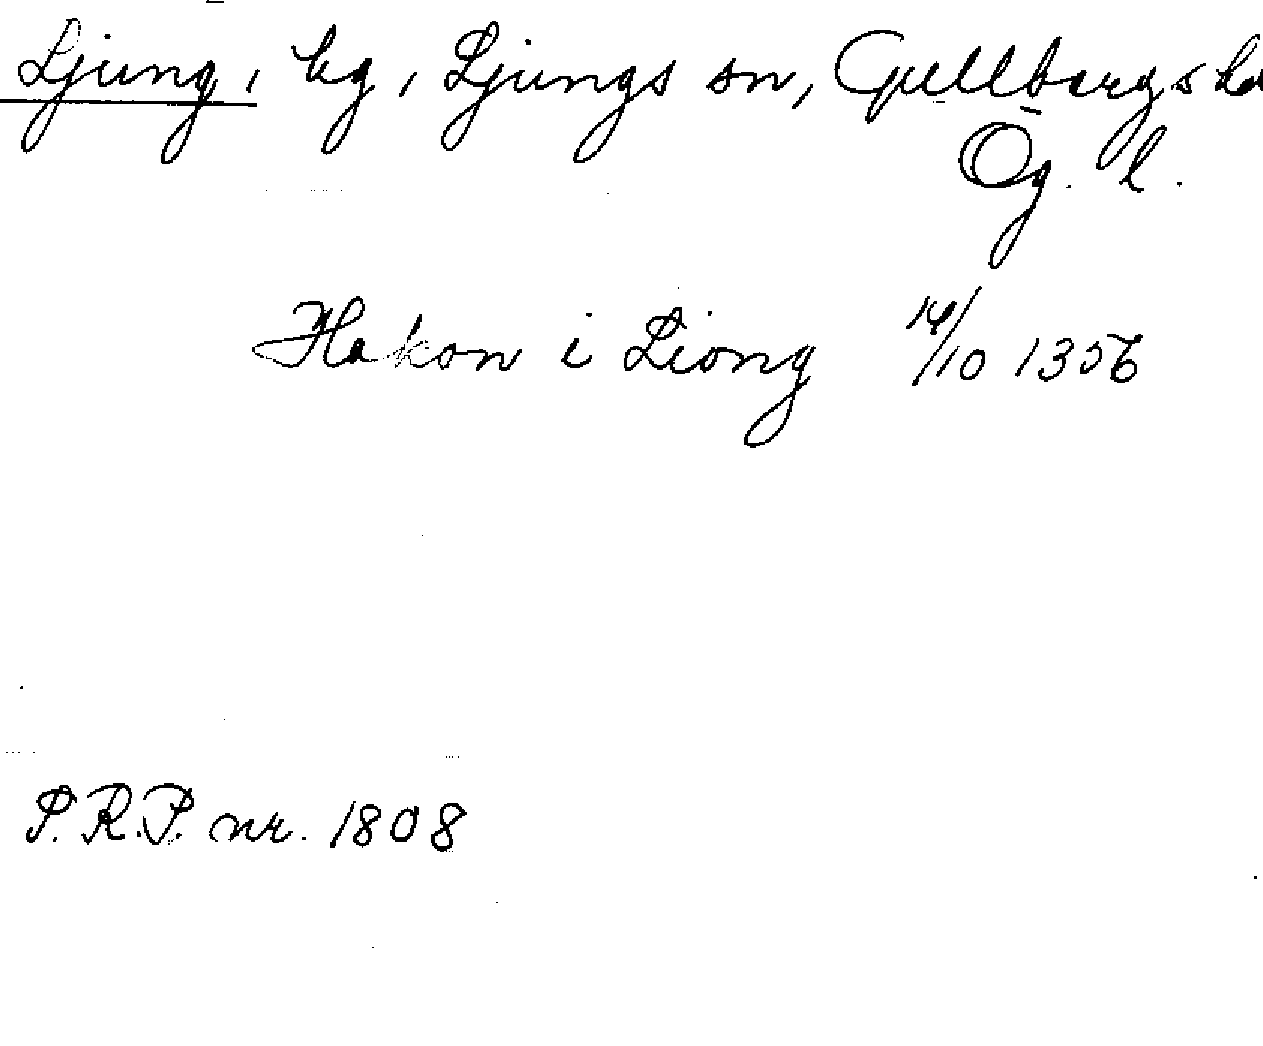 Ljung, by, Ljungs sn, Gullbergs hd
Ög. l.
Hakon i Liong 14/10 1356
P.R.P. nr. 1808